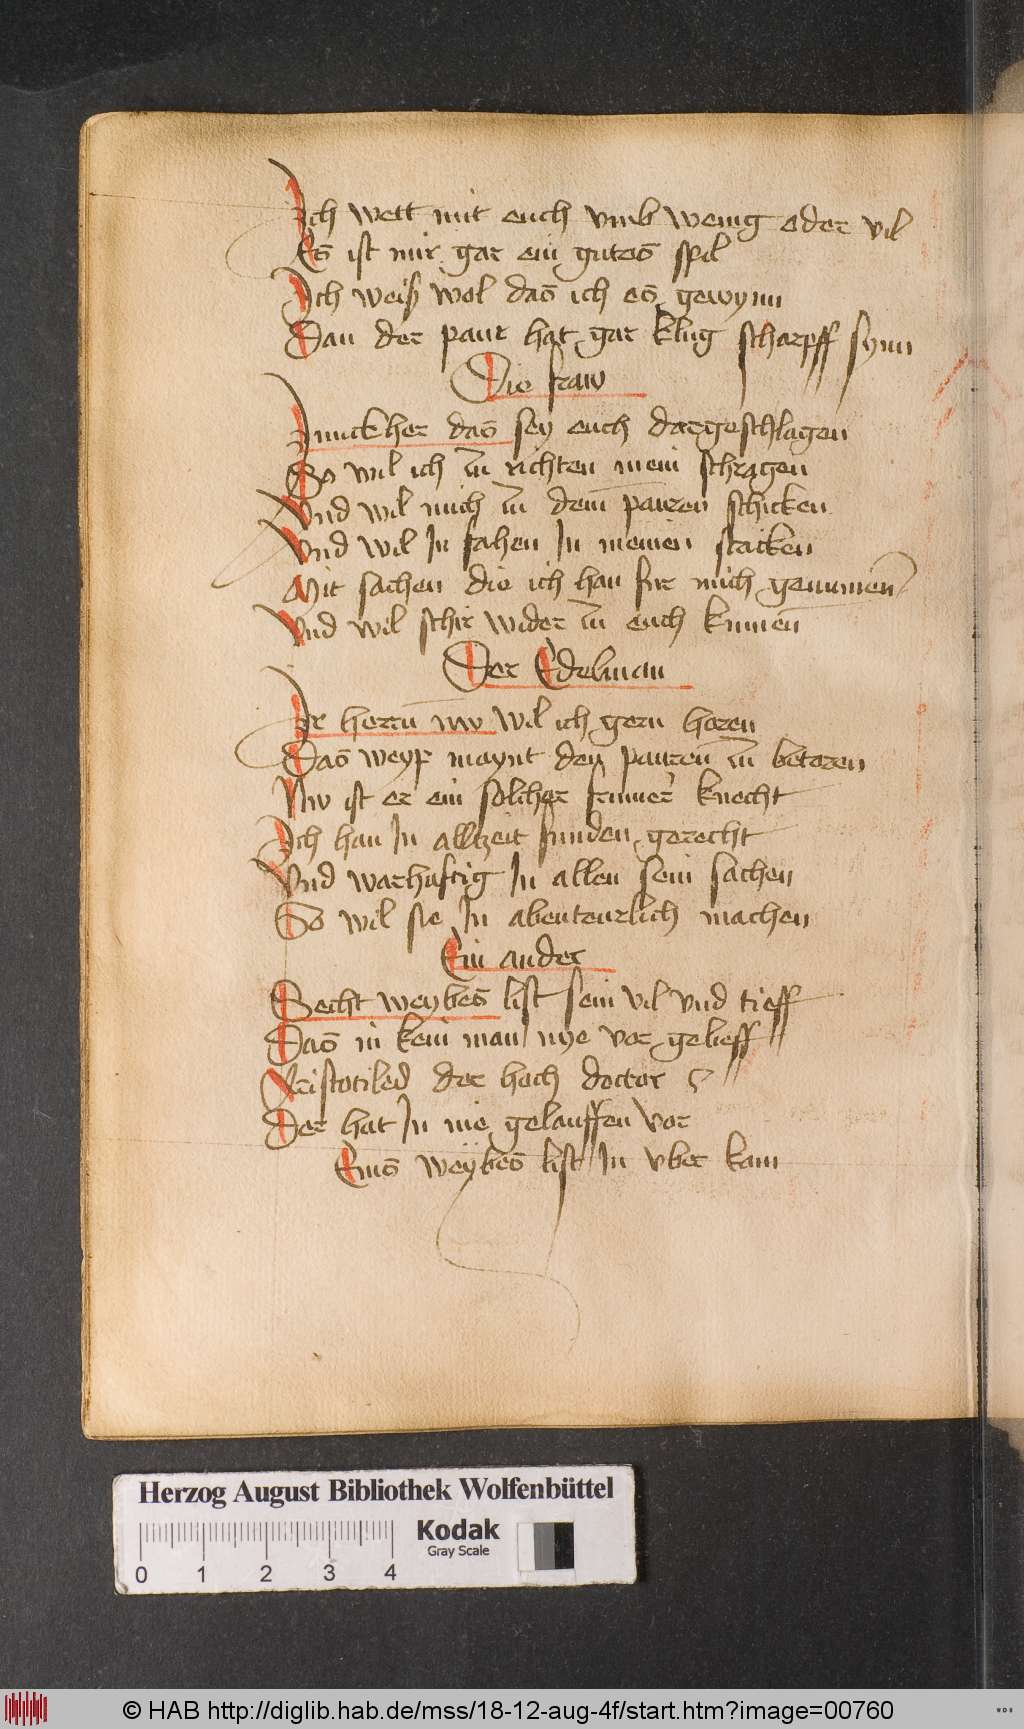 Ich wett mit euch vmb wenig oder vil
Es ist mir gar ein gutes spil
Ich weiß wol das ich es gewynn
Dan der paur hat gar klug scharpff synn
Die fraw
Junckher das sey euch dargeschlagen
So wil ich zu richten mein schragen
Vnd wil mich zu dem pauren schicken
Vnd wil In fahen In meinen stricken
Mit sachen die ich han fur mich genumen
Vnd wil schir wider zu euch kumen
Der Edelman
Ir herrn nw wil ich gern horen
Das weyp maynt den pauren zu betoren
Nw ist er ein solcher frumer knecht
Ich han In allzeit funden gerecht
Vnd warhaftig In allen sein sachen
So wil sie In abenteurlich machen
Ein ander
Secht weybes list sein vil vnd tieff
Das in kein man nye vor gelieff
Aristotiles der hoch doctor
Der hat In nie gelauffen vor
Eins weybes list In vber kam
Herzog August Bibliothek Wolfenbüttel
Kodak
Gray Scale
0 1 2 3 4
© HAB http://diglib.hab.de/mss/18-12-aug-4f/start.htm?image=00760